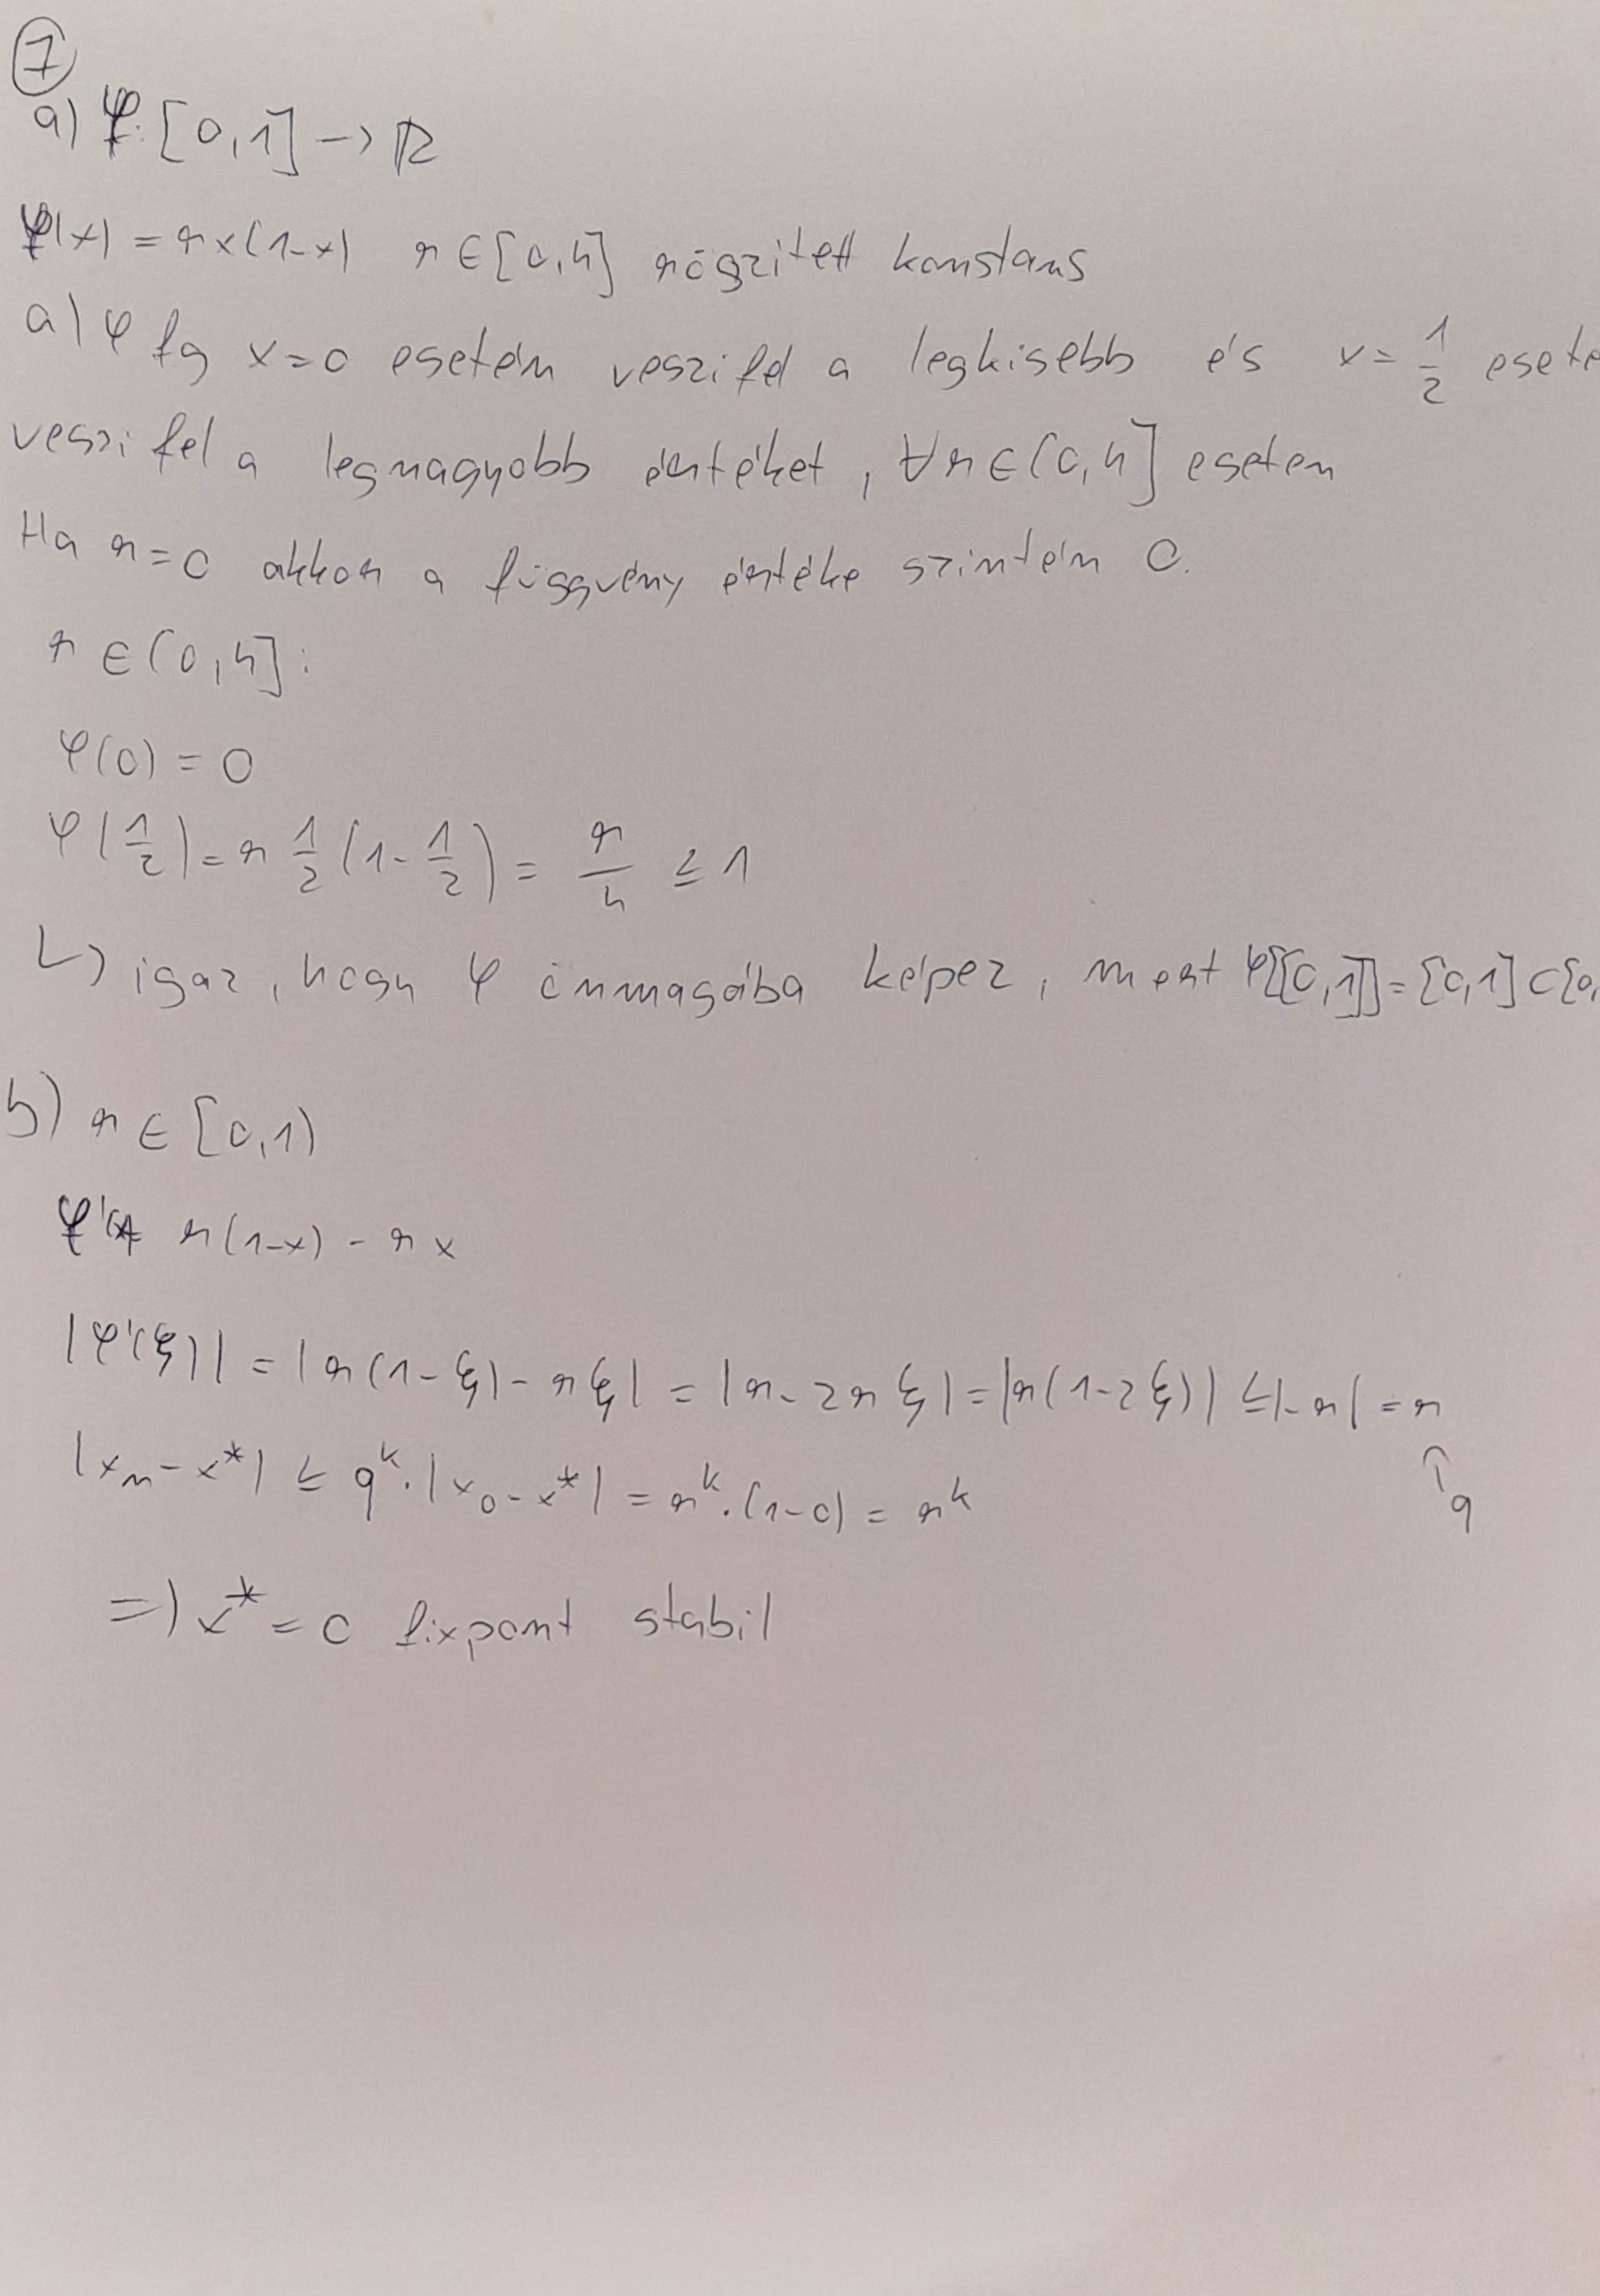 7
a) φ: [0,1] → ℝ
φ(x) = rx(1-x) r ∈ [0,4] rögzített konstans
a) φ fg x=0 esetén veszi fel a legkisebb és x = 1/2 eseté
veszi fel a legnagyobb értéket, ∀r∈(0,4] esetén
Ha r=0 akkor a függvény értéke szintén 0.
r ∈ (0,4]:
φ(0) = 0
φ(1/2) = r 1/2 (1 - 1/2) = r/4 ≤ 1
↳ igaz, hogy φ önmagába képez, mert φ[[0,1]] = [0,1] ⊂ [0,
b) r ∈ [0,1)
φ'(x) r(1-x) - rx
|φ'(ξ)| = |r(1-ξ) - rξ| = |r - 2rξ| = |r(1-2ξ)| ≤ |-r| = r
↑ q
|x_n - x*| ≤ q^k · |x_0 - x*| = r^k · (1-0) = r^k
⇒ x* = 0 fixpont stabil